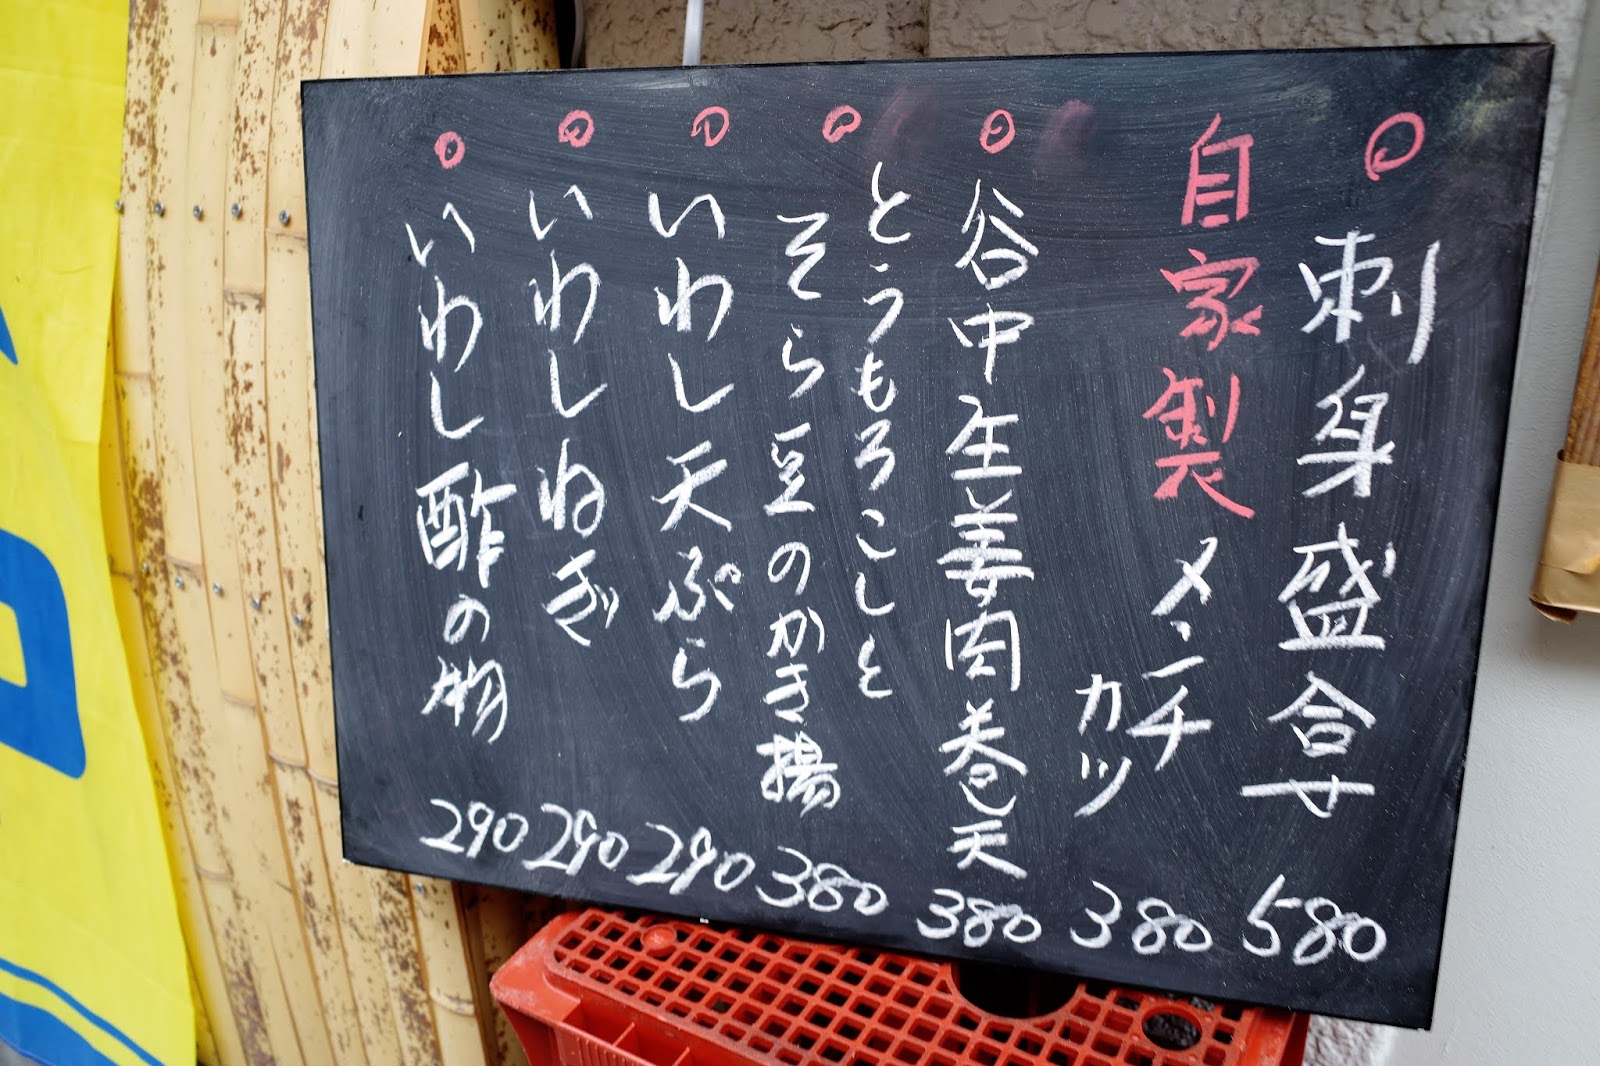 刺身盛合せ 580
自家製メンチカツ 380
谷中生姜肉巻天 380
とうもろこしと
そら豆のかき揚 380
いわし天ぷら 290
いわしねぎ 290
いわし酢の物 290